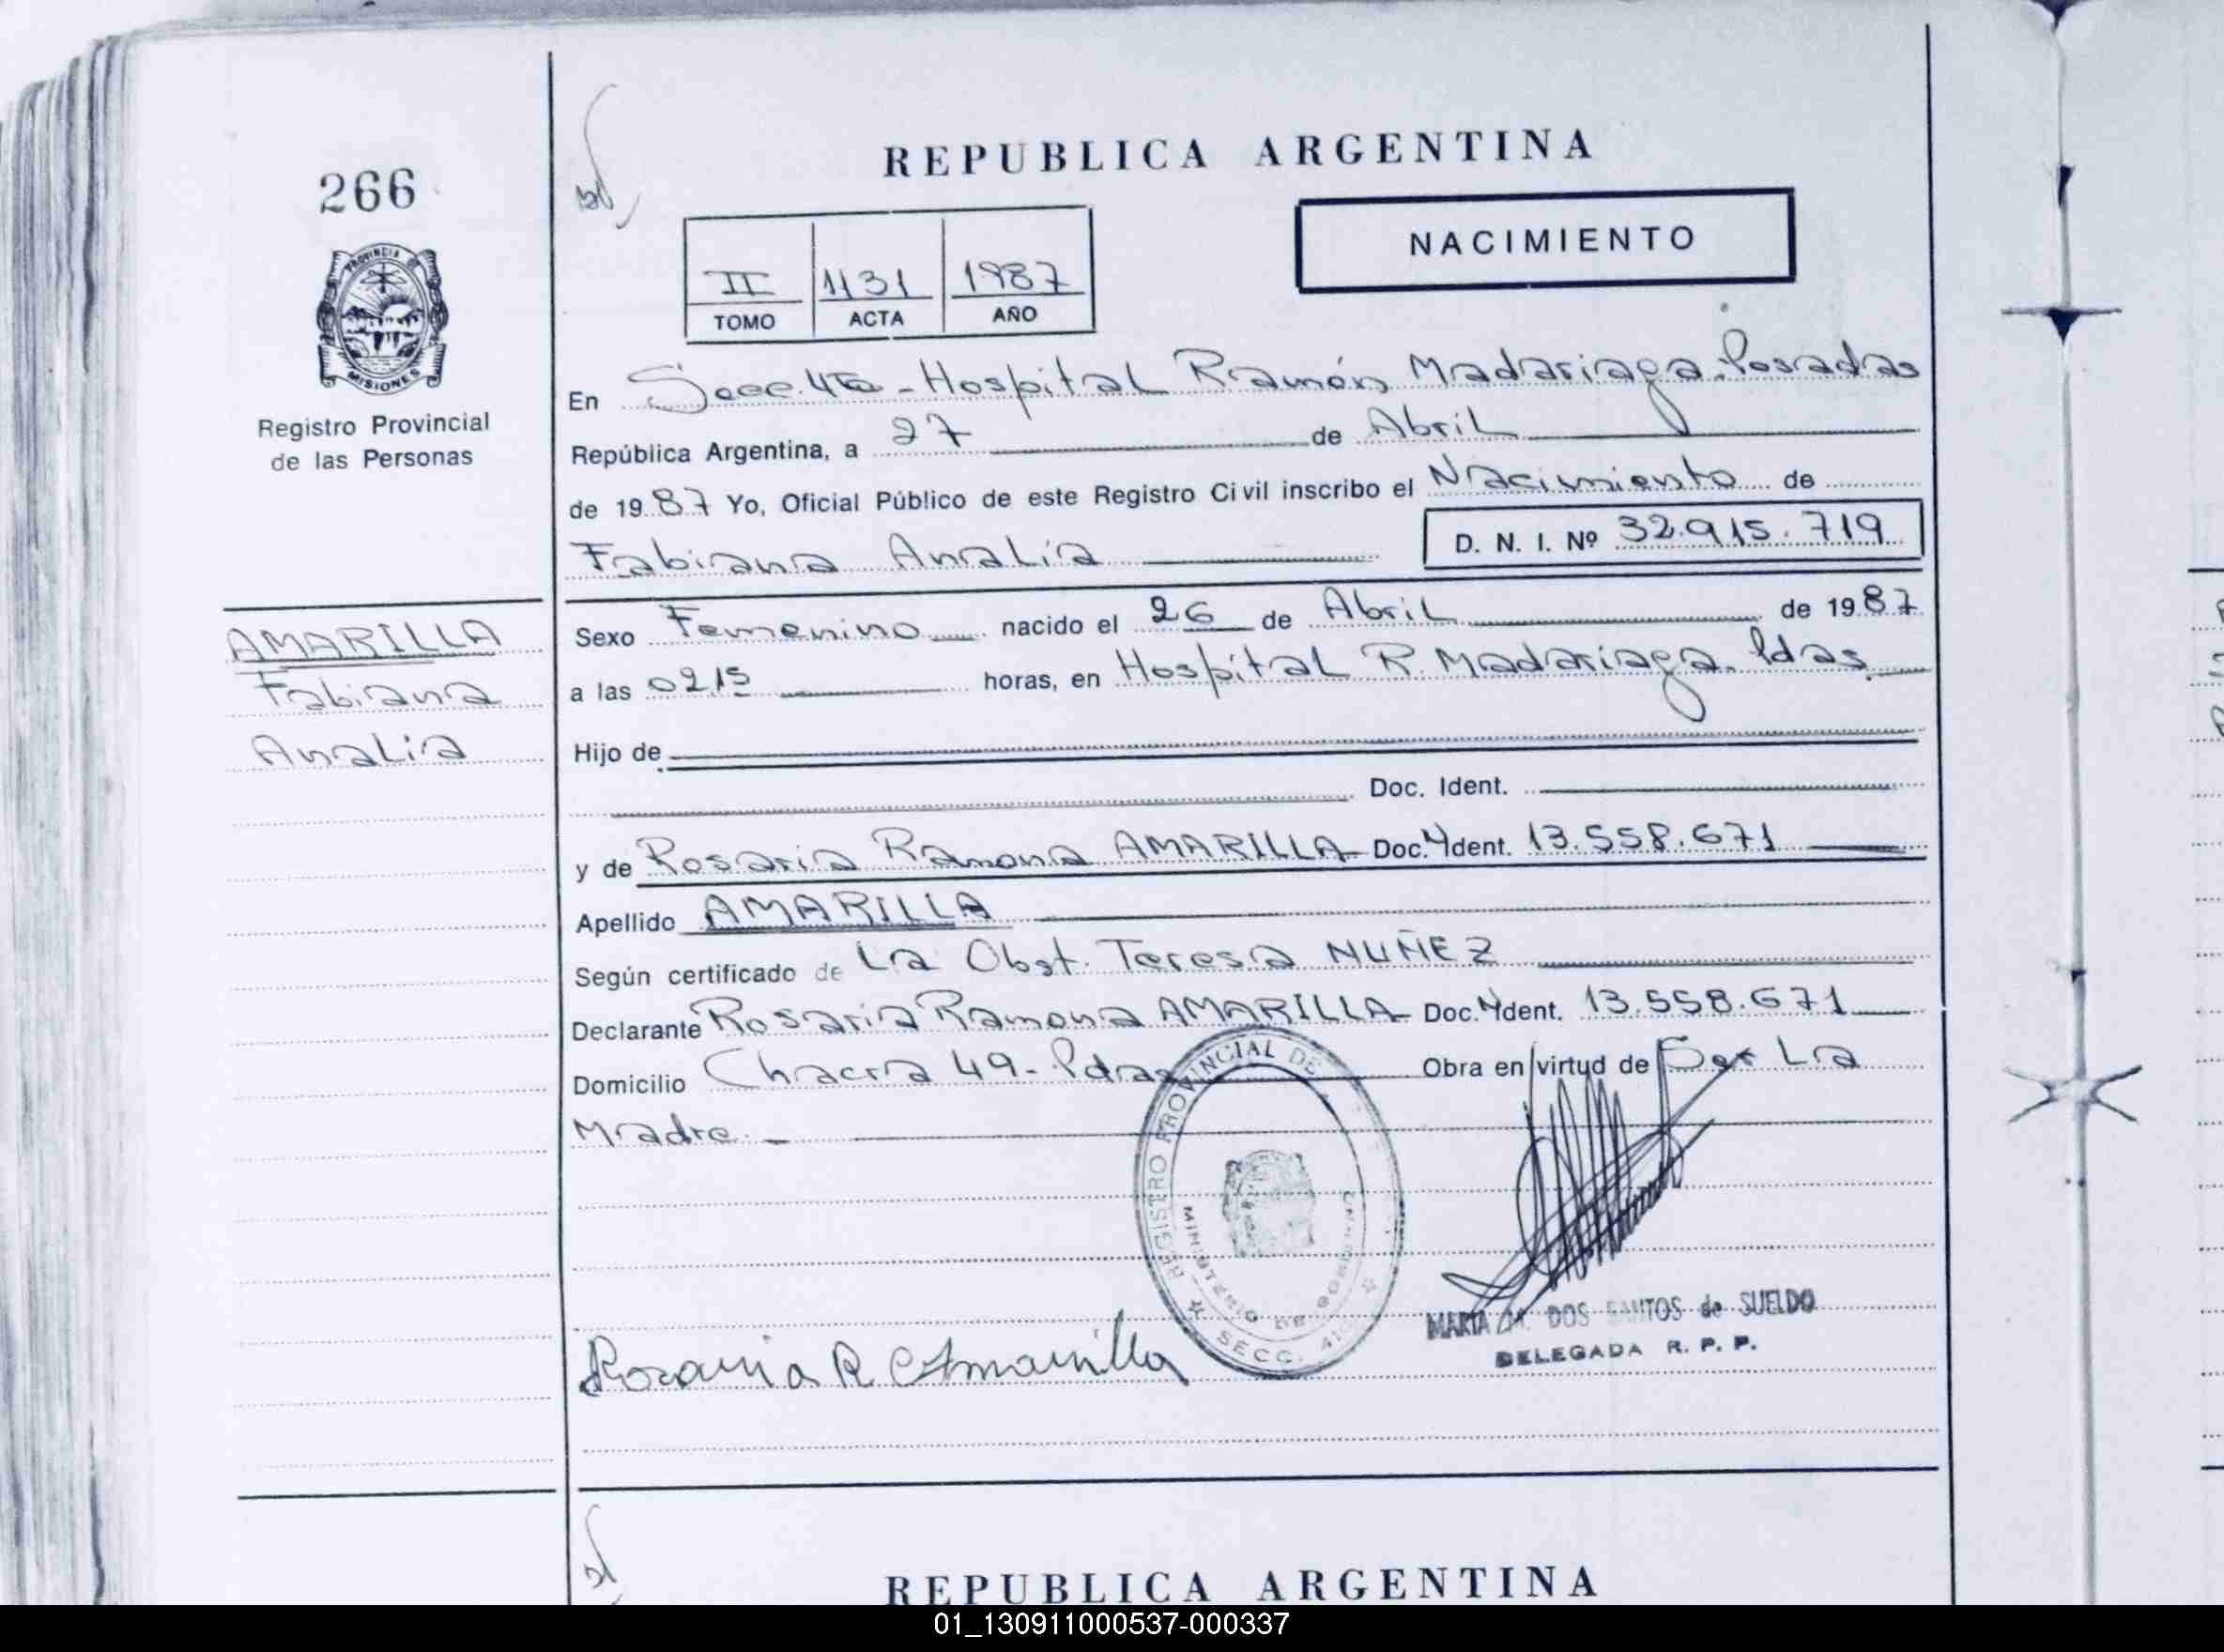 266
PROVINCIA DE
MISIONES
Registro Provincial
de las Personas
AMARILLA
Fabiana
Analia
REPUBLICA ARGENTINA
NACIMIENTO
II 1131 1987
TOMO ACTA AÑO
En Secc. 4ta - Hospital Ramón Madariaga. Posadas
República Argentina, a 27 de Abril
de 1987 Yo, Oficial Público de este Registro Civil inscribo el Nacimiento de
Fabiana Analía D. N. I. Nº 32.915.719
Sexo Femenino nacido el 26 de Abril de 1987
a las 0215 horas, en Hospital R. Madariaga. Pdas
Hijo de
Doc. Ident.
y de Rosaria Ramona AMARILLA Doc. Ident. 13.558.671
Apellido AMARILLA
Según certificado de La Obst. Teresa NUÑEZ
Declarante Rosaria Ramona AMARILLA Doc. Ident. 13.558.671
Domicilio Chacra 49 - Pdas Obra en virtud de Ser La
Madre. -
REGISTRO PROVINCIAL DE
MINISTERIO DE GOBIERNO
SECC. 4
MARIA M. DOS SANTOS de SUELDO
DELEGADA R. P. P.
Rosaria R Amarilla
REPUBLICA ARGENTINA
01_130911000537-000337